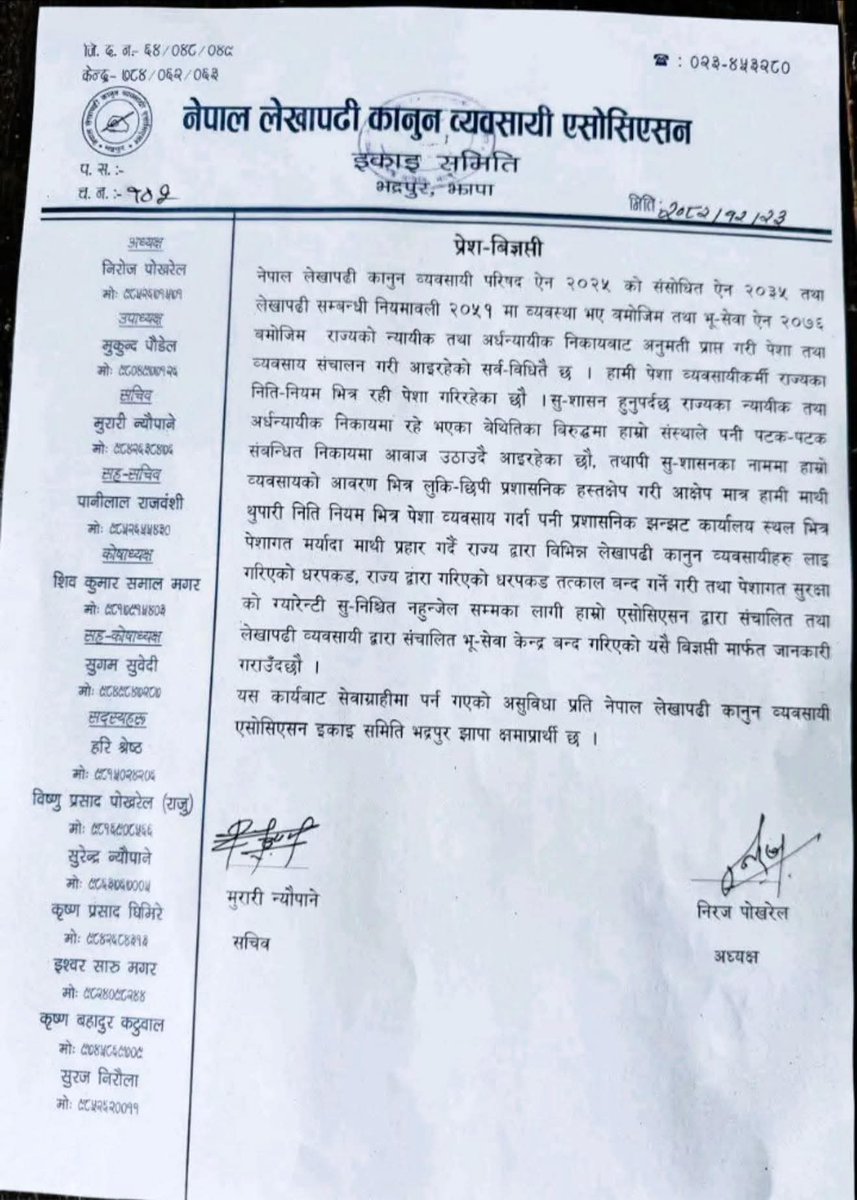 जि. द. न.- ६४/०४८/०४९
केन्द्र- ७८४/०६२/०६३
☎ : ०२३-४५३२८०
नेपाल लेखापढी कानुन व्यवसायी एसोसिएसन
इकाइ समिति
भद्रपुर, झापा
प. स.:-
च. न.:-
मिति: २०८२/१२/२३
प्रेश-बिज्ञप्ती
नेपाल लेखापढी कानुन व्यवसायी परिषद ऐन २०२५ को संसोधित ऐन २०३५ तथा
लेखापढी सम्बन्धी नियमावली २०५१ मा व्यवस्था भए बमोजिम तथा भू-सेवा ऐन २०७६
बमोजिम राज्यको न्यायीक तथा अर्धन्यायीक निकायबाट अनुमती प्राप्त गरी पेशा तथा
व्यवसाय संचालन गरी आइरहेको सर्व-विधितै छ । हामी पेशा व्यवसायीकर्मी राज्यका
निति-नियम भित्र रही पेशा गरिरहेका छौ । सु-शासन हुनुपर्दछ राज्यका न्यायीक तथा
अर्धन्यायीक निकायमा रहे भएका बेथितिका विरुद्धमा हाम्रो संस्थाले पनी पटक-पटक
संबन्धित निकायमा आवाज उठाउदै आइरहेका छौ, तथापी सु-शासनका नाममा हाम्रो
व्यवसायको आवरण भित्र लुकि-छिपी प्रशासनिक हस्तक्षेप गरी आक्षेप मात्र हामी माथी
थुपारी निति नियम भित्र पेशा व्यवसाय गर्दा पनी प्रशासनिक झन्झट कार्यालय स्थल भित्र
पेशागत मर्यादा माथी प्रहार गर्दै राज्य द्वारा विभिन्न लेखापढी कानुन व्यवसायीहरु लाइ
गरिएको धरपकड, राज्य द्वारा गरिएको धरपकड तत्काल बन्द गर्ने गरी तथा पेशागत सुरक्षा
को ग्यारेन्टी सु-निश्चित नहुन्जेल सम्मका लागी हाम्रो एसोसिएसन द्वारा संचालित तथा
लेखापढी व्यवसायी द्वारा संचालित भू-सेवा केन्द्र बन्द गरिएको यसै बिज्ञप्ती मार्फत जानकारी
गराउँदछौ ।
यस कार्यबाट सेवाग्राहीमा पर्न गएको असुविधा प्रति नेपाल लेखापढी कानुन व्यवसायी
एसोसिएसन इकाइ समिति भद्रपुर झापा क्षमाप्रार्थी छ ।
मुरारी न्यौपाने
सचिव
निरज पोखरेल
अध्यक्ष
अध्यक्ष
निरोज पोखरेल
मो:
उपाध्यक्ष
मुकुन्द पौडेल
मो:
सचिव
मुरारी न्यौपाने
मो:
सह-सचिव
पानीलाल राजवंशी
मो:
कोषाध्यक्ष
शिव कुमार समाल मगर
मो:
सह-कोषाध्यक्ष
सुगम सुवेदी
मो:
सदस्यहरू
हरि श्रेष्ठ
मो:
विष्णु प्रसाद पोखरेल (राजु)
मो:
सुरेन्द्र न्यौपाने
मो:
कृष्ण प्रसाद घिमिरे
मो:
इश्वर सारु मगर
मो:
कृष्ण बहादुर कटुवाल
मो:
सुरज निरौला
मो: